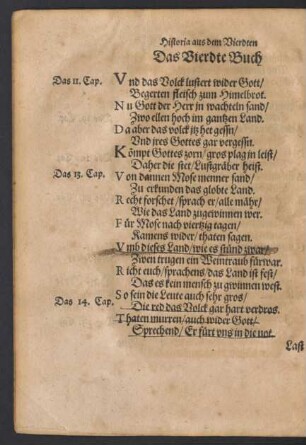 Historia aus dem Vierdten
Das Vierdte Buch
Das 11. Cap. Vnd das Volck lustert wider Gott/
Begerten fleisch zum Himelbrot.
Nu Gott der Herr jn wachteln sand/
Zwo ellen hoch im gantzen Land.
Da aber das volck jtzt gessn/
Vnd ires Gottes gar vergessn.
Kömpt Gottes zorn/gros plag in leist/
Daher die stet/Lustgräber heist.
Das 13. Cap. Von dannen Mose menner sand/
Zu erkunden das globte Land.
Recht forschet/sprach er/alle mähr/
Wie das Land zugewinnen wer.
Für Mose nach viertzig tagen/
Kamens wider/thaten sagen.
Vmb dieses Land/wie es stünd zwar/
Zwen trugen ein Weintraub fürwar.
Richt euch/sprachens/das Land ist fest/
Das es kein mensch zu gwinnen west.
So sein die Leute auch sehr gros/
Das 14. Cap. Die red das Volck gar hart verdros.
Thaten murren/auch wider Gott/
Sprechend/Er fürt vns in die not
Last